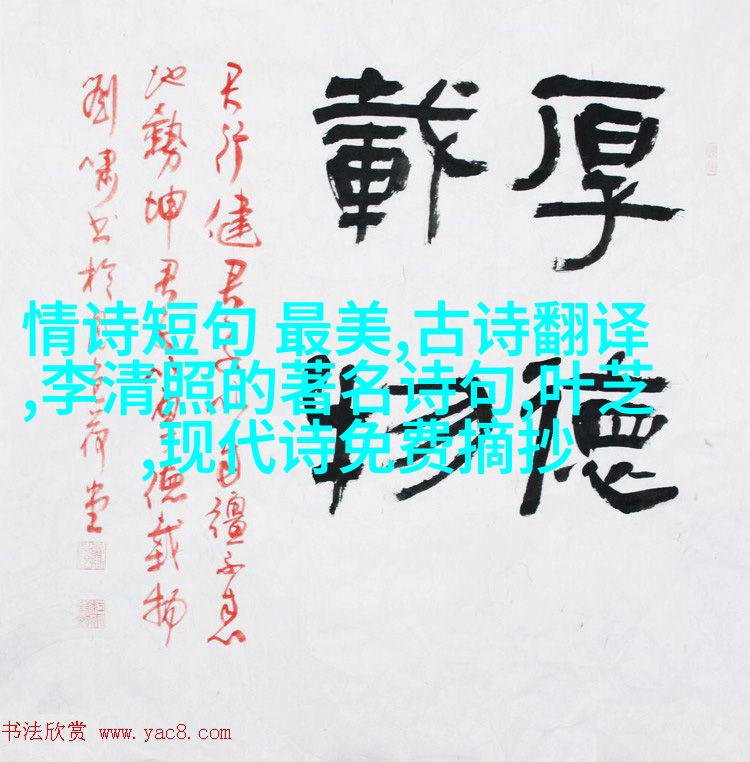 厚德
載物
天行健君子以自彊不息
地勢坤君子以厚德載物
劉嘯书於荷堂
情诗短句 最美,古诗翻译
,李清照的著名诗句,叶芝
,现代诗免费摘抄
书法欣赏 www.yac8.com